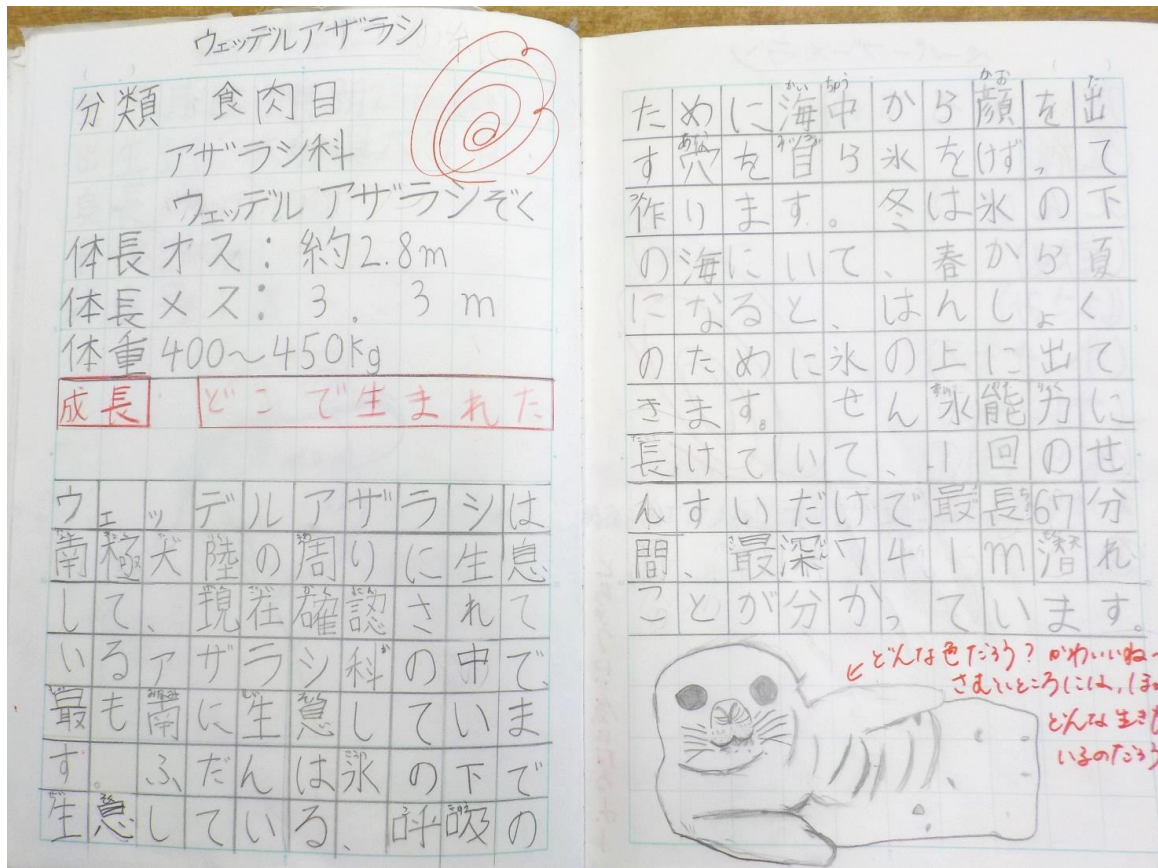 ウェッデルアザラシ
分類 食肉目
アザラシ科
ウェッデルアザラシぞく
体長オス：約2.8m
体長メス：3.3m
体重400～450kg
成長 どこで生まれた
ウェッデルアザラシは
南極大陸の周りに生息
して、現在確認されて
いるアザラシ科の中で、
最も南に生息していま
す。ふだんは氷の下で
生息している、呼吸の
ために海中から顔を出
す穴を自ら氷をけずって
作ります。冬は氷の下
の海にいて、春から夏
になると、はんしょく
のために氷の上に出て
きます。せん水能力に
長けていて、1回のせ
んすいだけで最長67分
間、最深741m潜れ
ことが分かっています。
どんな色だろう？かわいいね〜
さむいところには、ほか
どんな生きも
いるのだろう